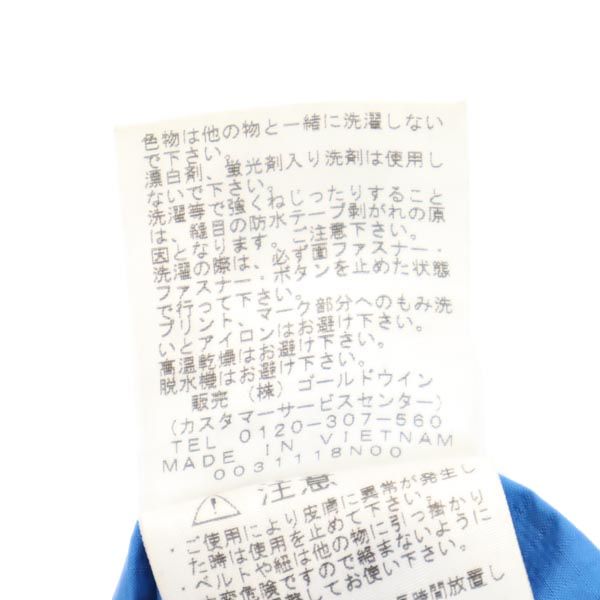 色物は他の物と一緒に洗濯しない
で下さい。
漂白剤、蛍光剤入り洗剤は使用し
ないで下さい。
洗濯等で強くねじったりすること
は、縫目の防水テープ剥がれの原
因となります。ご注意下さい。
洗濯の際は、必ず面ファスナー・
ファスナー・ボタンを止めた状態
で行って下さい。
プリント、マーク部分へのもみ洗
いとアイロンはお避け下さい。
高温乾燥はお避け下さい。
脱水機はお避け下さい。
販売 (株) ゴールドウイン
(カスタマーサービスセンター)
TEL 0120-307-560
MADE IN VIETNAM
0031118N00
注意
・ご使用により皮膚に異常が発生し
た時は使用を止めて下さい。
・ベルトや紐は他の物に引っ掛かり
大変危険ですので絡まないように
調整してお使い下さい。
長時間放置し